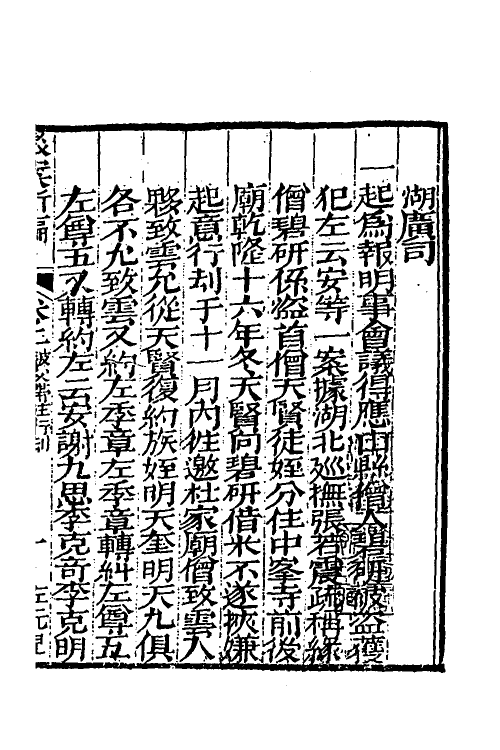 湖廣司
一起爲報明事會議得應山縣僧人碧研被盜獲
犯左云安等一案據湖北廵撫張若震疏稱緣
僧碧研係盜首僧天賢徒姪分住中峯寺前後
廟乾隆十六年冬天賢向碧研借米不遂挾嫌
起意行刦于十一月內徃邀杜家廟僧致雲入
夥致雲允從天賢復約族姪明天奎明天九俱
各不允致雲又約左季章左季章轉糾左尊五
左尊五又轉約左云安謝九思李克奇李克明
新編
卷
一